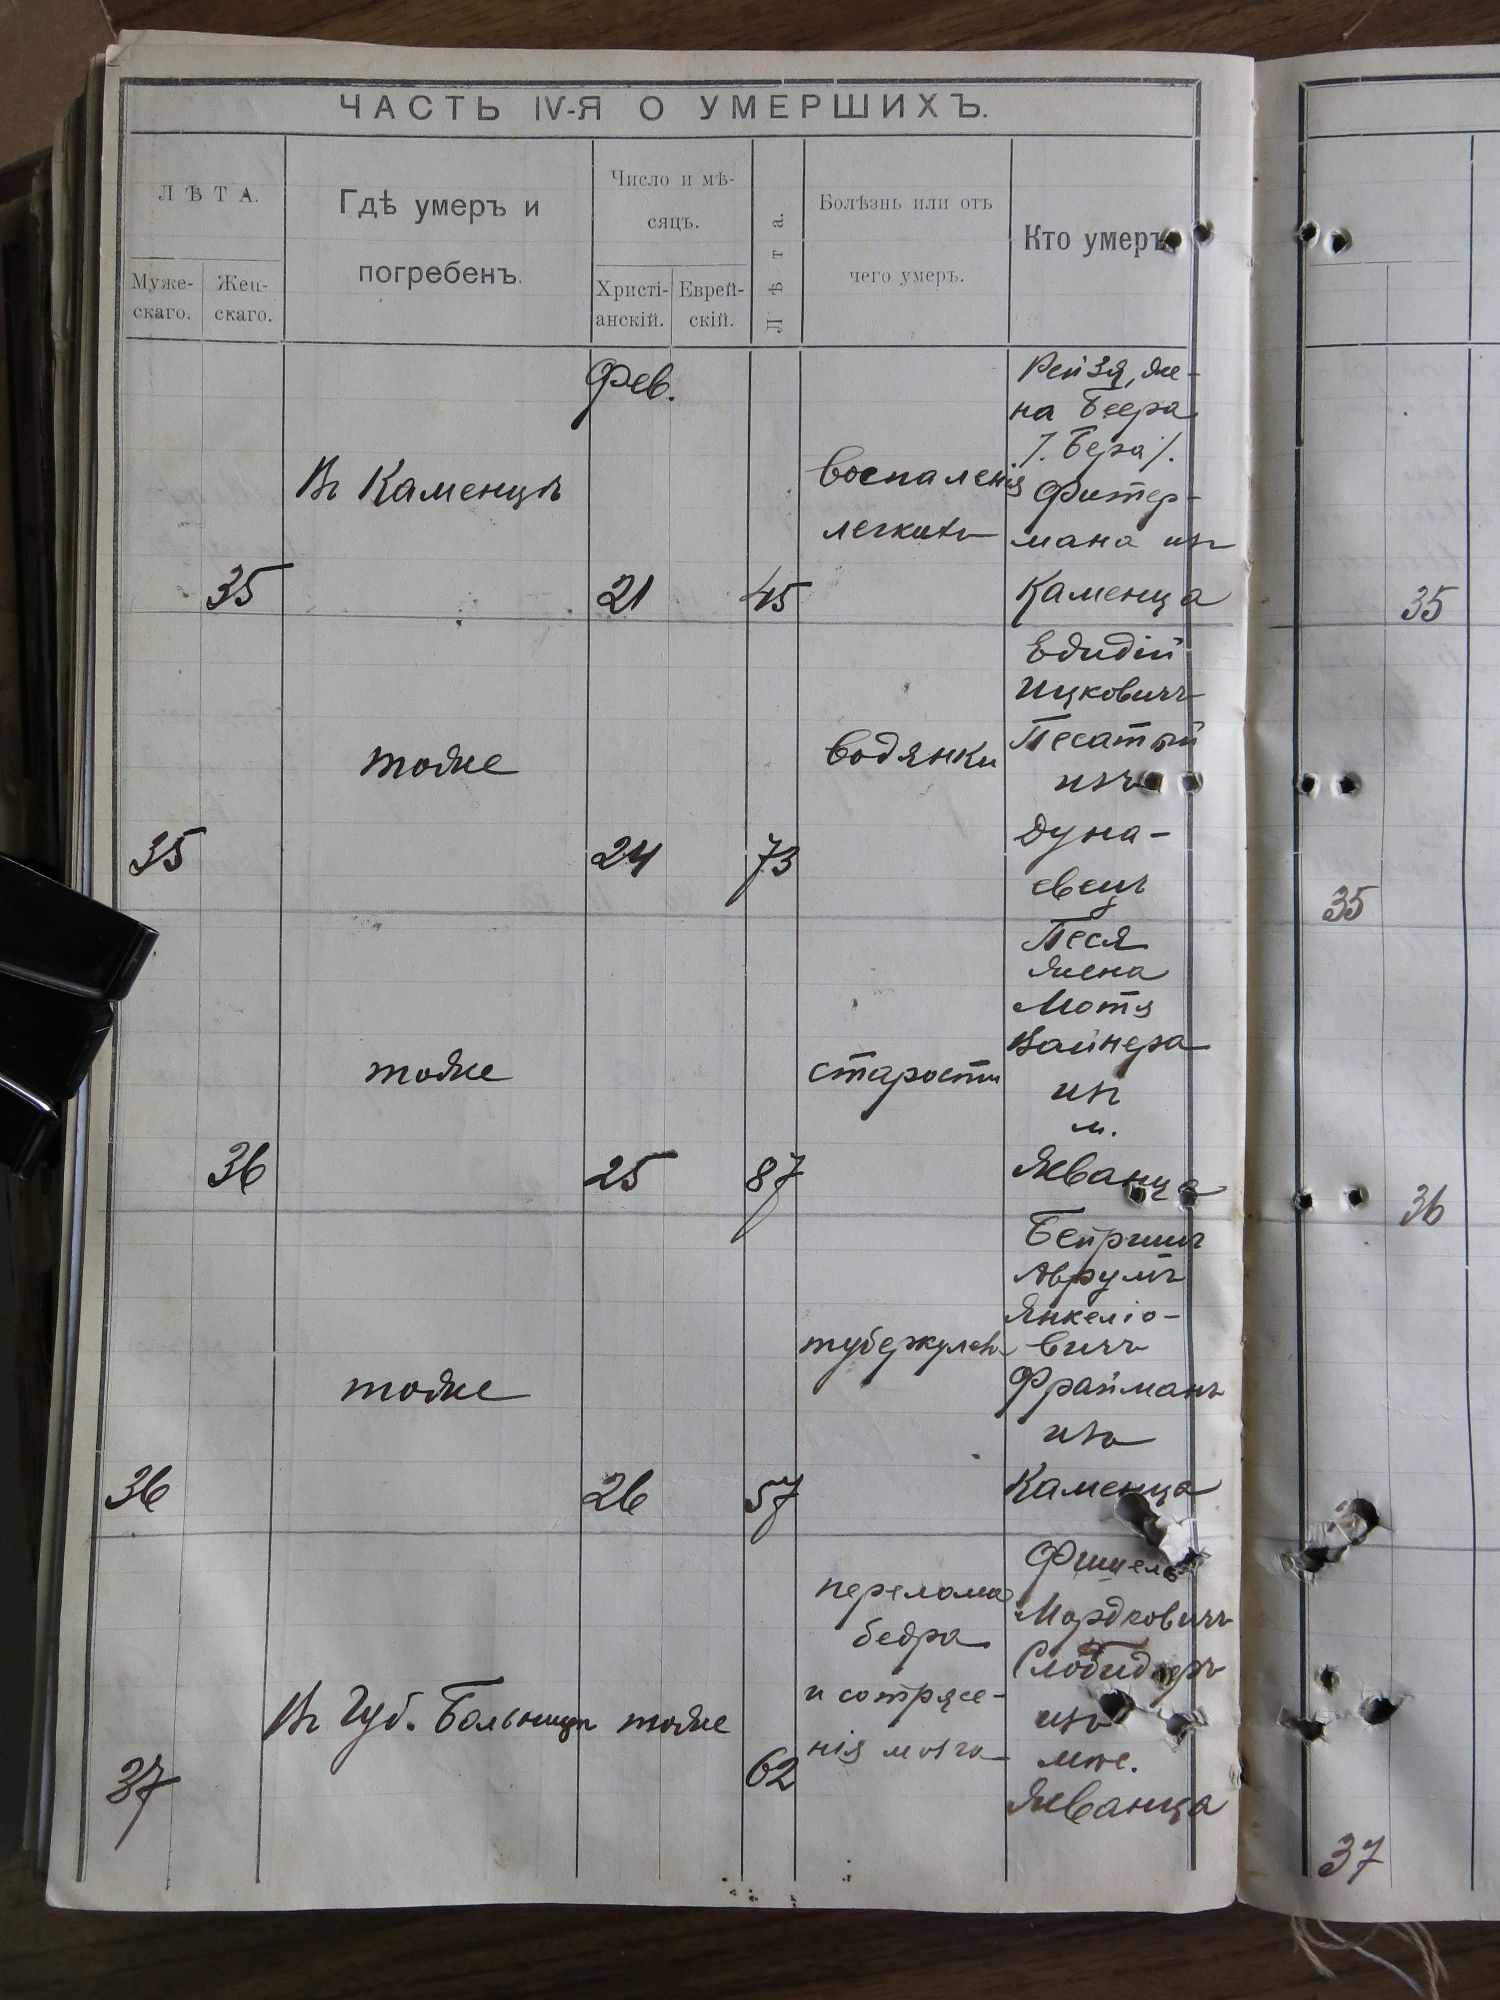 ЧАСТЬ IV-Я О УМЕРШИХЪ.
ЛѢТА.
Муже-
скаго.
Жен-
скаго.
Гдѣ умеръ и
погребенъ.
Число и мѣ-
сяцъ.
Христі-
анскій.
Еврей-
скій.
Лѣта.
Болѣзнь или отъ
чего умеръ.
Кто умеръ
35
Въ Каменцѣ
Фев.
21
45
воспаленія
легкихъ
Рейзя, же-
на Беера
/. Бера /.
Фитер-
мана изъ
Каменца
35
35
тоже
24
73
водянки
Едидій
Ицковичъ
Песатый
изъ
Дуна-
евецъ
35
36
тоже
25
87
старости
Песя
жена
Мотя
Вайнера
изъ
м.
Жванца
36
36
тоже
26
57
туберкулеза
Бейришъ
Аврумъ
Янкеліо-
вичъ
Фрайманъ
изъ
Каменца
37
Въ Губ. Больницѣ тоже
62
перелома
бедра
и сотрясе-
нія мозга
Фишель
Мордковичъ
Слободяръ
изъ
мте.
Жванца
37